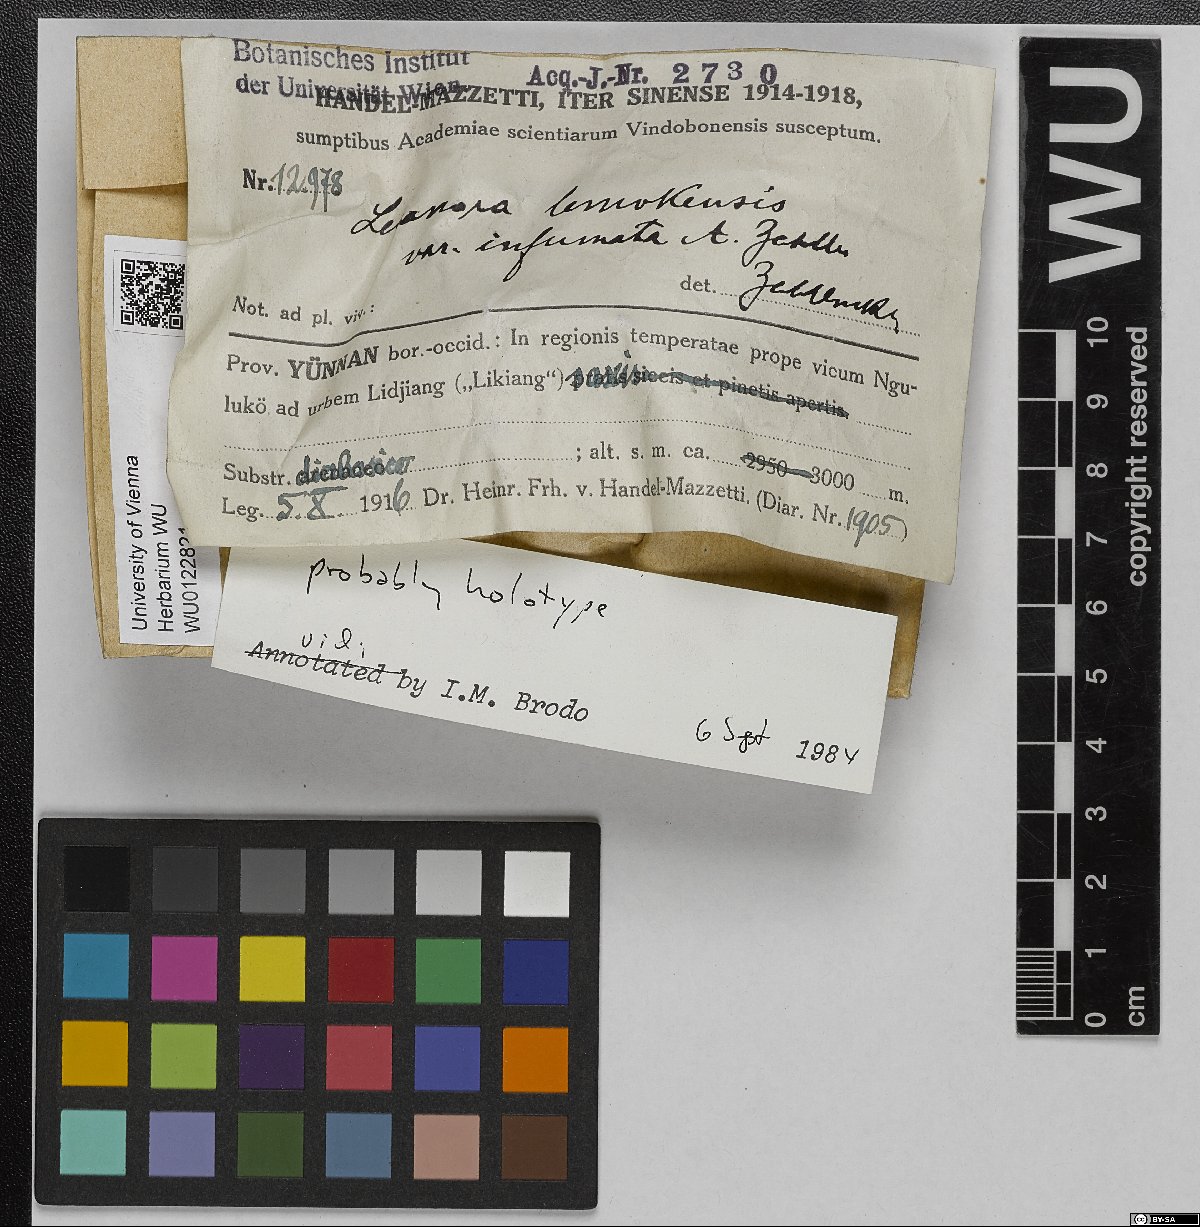 Botanisches Institut
der Universität Wien
Acq.-J.-Nr. 2730
HANDEL-MAZZETTI, ITER SINENSE 1914-1918,
sumptibus Academiae scientiarum Vindobonensis susceptum.
Nr. 12.978
Lecanora
var. infumata A. Zahlbr.
det. Zahlbruckn
Not. ad pl. viv.:
Prov. YÜNNAN bor.-occid.: In regionis temperatae prope vicum Ngu-
lukö ad urbem Lidjiang („Likiang“) siccis et pinetis apertis.
Substr. diabasico ; alt. s. m. ca. 2950-3000 m.
Leg. 5.X. 1916 Dr. Heinr. Frh. v. Handel-Mazzetti. (Diar. Nr. 1905)
University of Vienna
Herbarium WU
probably holotype
vidi
Annotated by I.M. Brodo
6 Sept 1984
WU
copyright reserved
10
9
8
7
6
5
4
3
2
1
0
cm
CC BY-SA